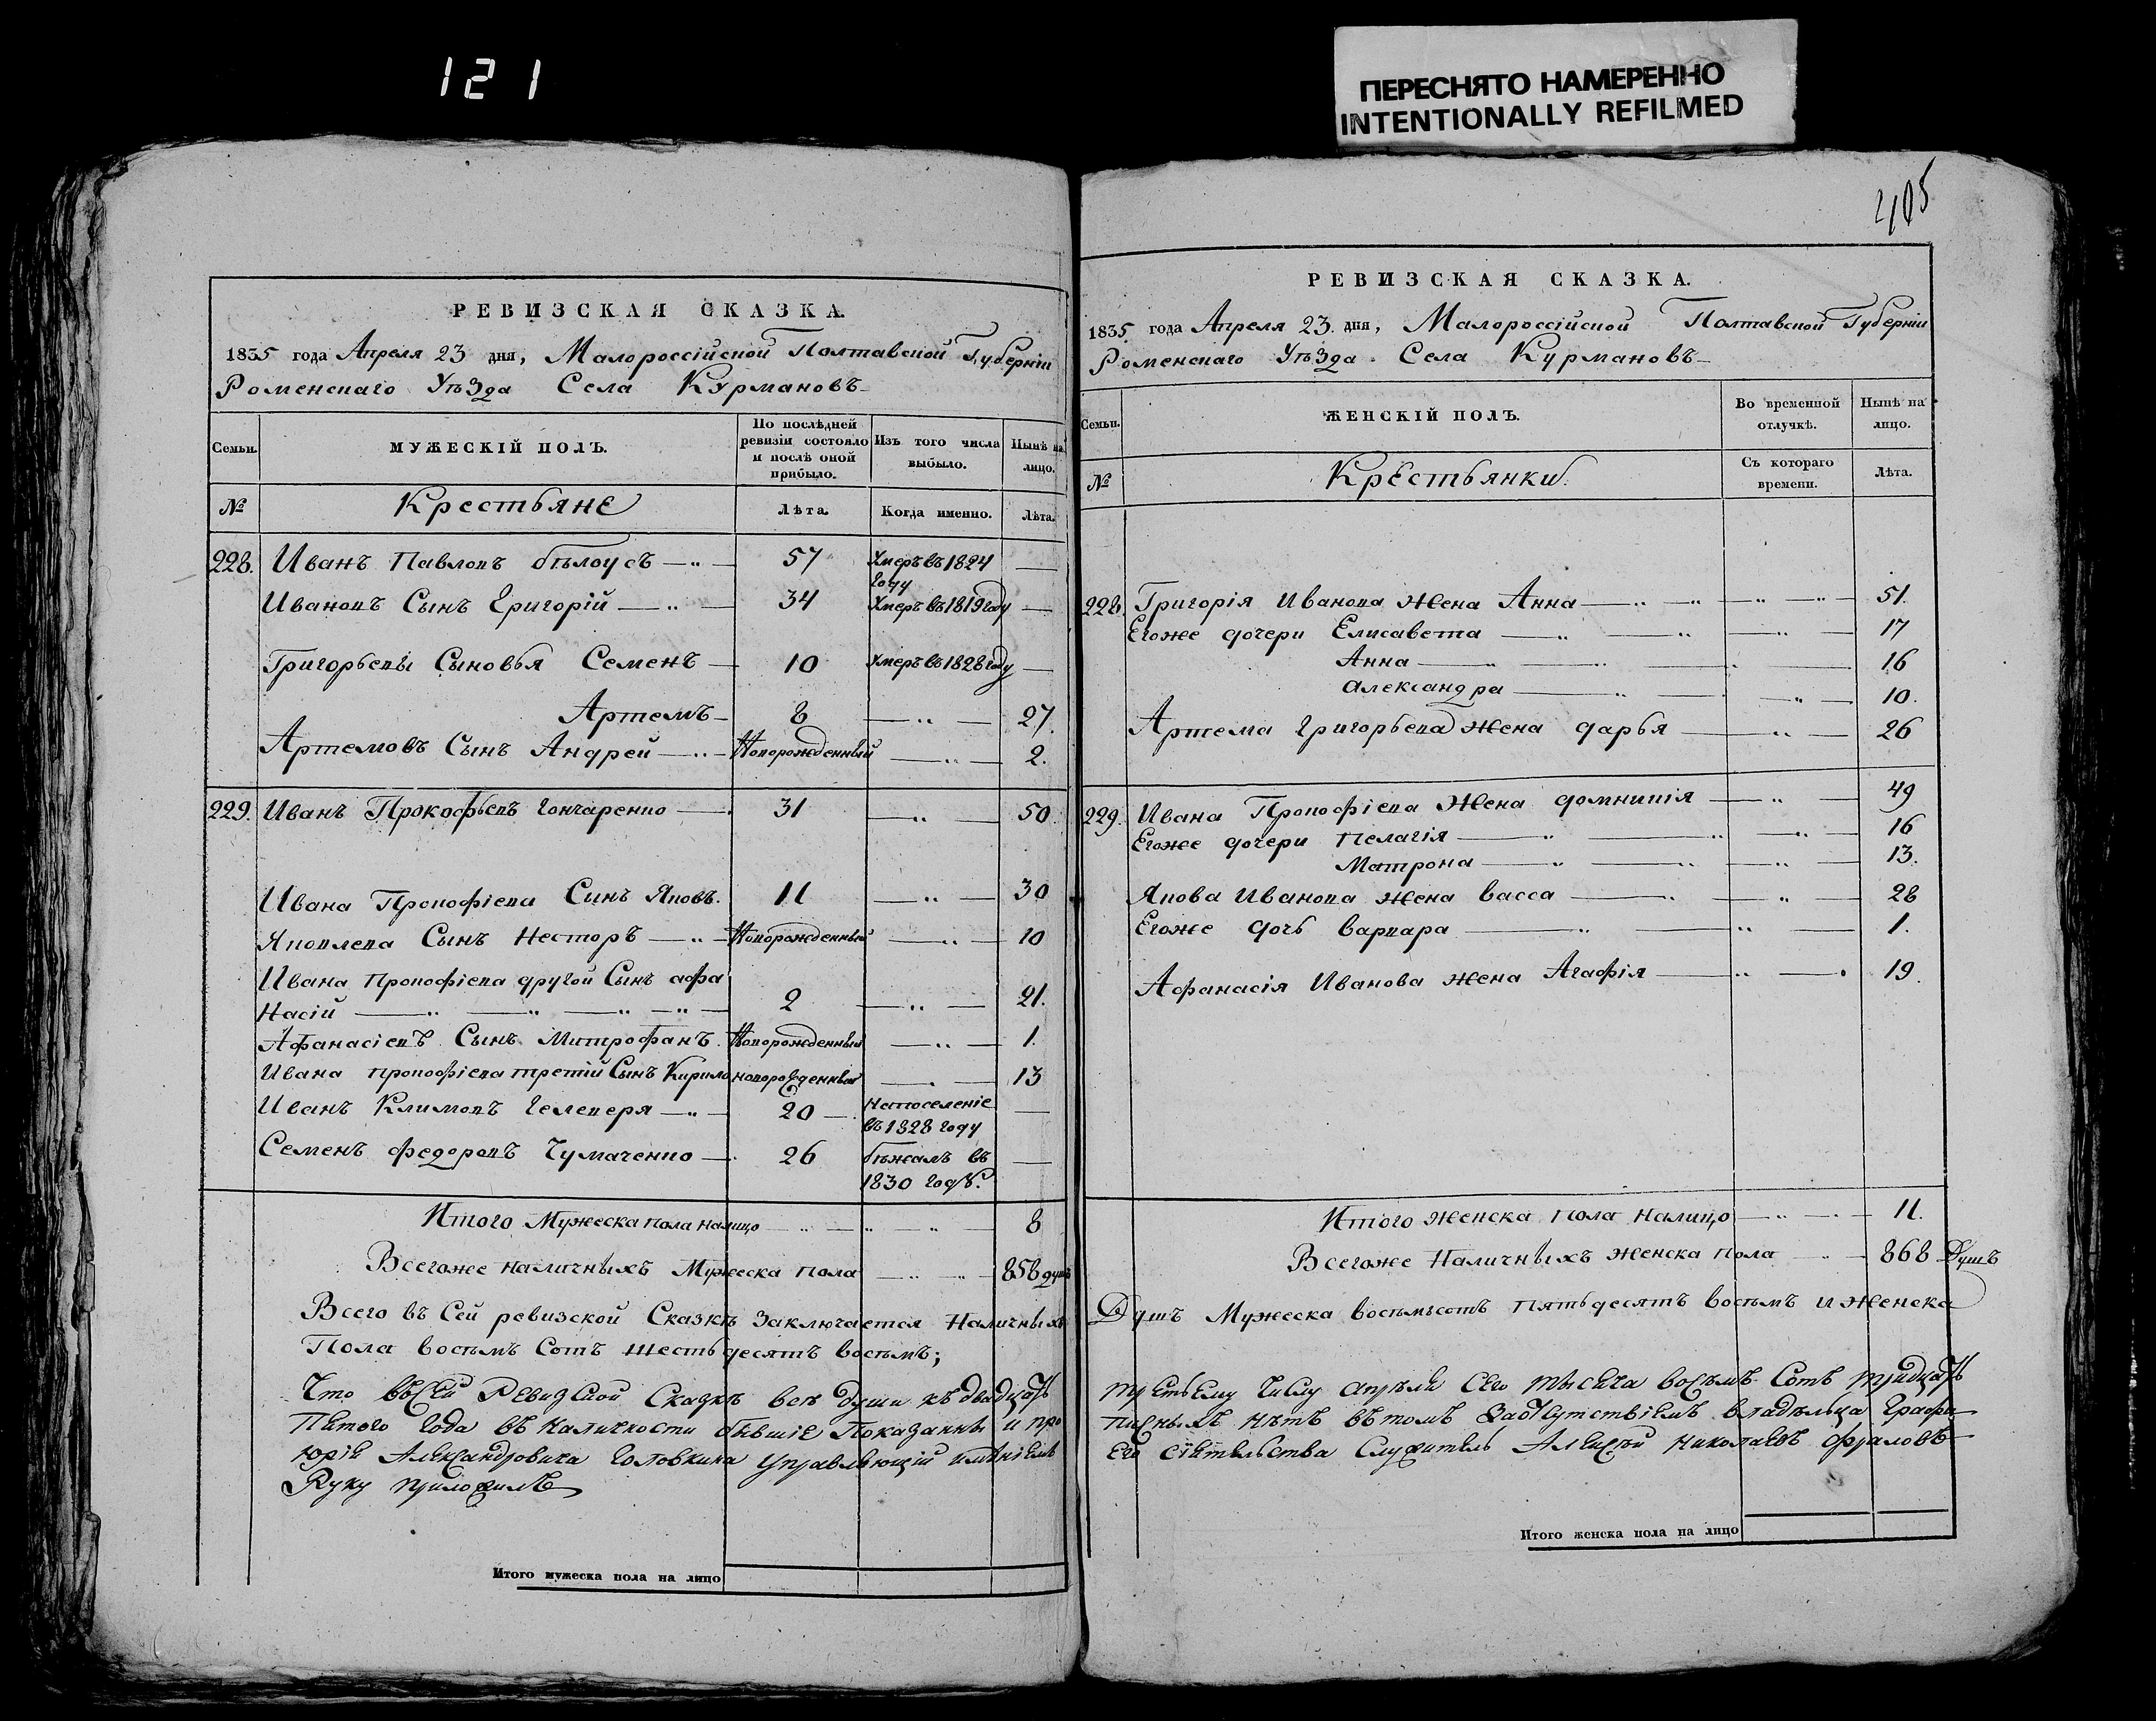 121
ПЕРЕСНЯТО НАМЕРЕННО
INTENTIONALLY REFILMED
405
РЕВИЗСКАЯ СКАЗКА.
1835 года Апреля 23 дня, Малороссійской Полтавской Губерніи
Роменскаго Уѣзда Села Курмановъ
Семьи.
МУЖЕСКІЙ ПОЛЪ.
По послѣдней ревизіи состояло и послѣ оной прибыло.
Изъ того числа выбыло.
Нынѣ на лицо.
№
Крестьяне
Лѣта.
Когда именно.
Лѣта.
228. Иванъ Павловъ бѣлоусъ 57 Умеръ въ 1824 году
Ивановъ Сынъ Григорій 34 Умеръ въ 1819 году
Григорьевы Сыновья Семенъ 10 Умеръ въ 1828 году
Артемъ 8 27.
Артемовъ Сынъ Андрей Новорожденный 2.
229. Иванъ Прокофьевъ Гончаренко 31 50
Ивана Прокофіева Сынъ Яковъ. 11 30
Яковлева Сынъ Несторъ Новорожденный 10
Ивана Прокофіева другой Сынъ афа
насій 2 21.
Афанасіевъ Сынъ Митрофанъ. Новорожденный 1.
Ивана прокофіева третій Сынъ Кирило новорожденный 13
Иванъ Климовъ Челеверя 20 На поселеніе въ 1828 году
Семенъ федоровъ Чумаченко 26 бѣжалъ въ 1830 годѣ.
Итого Мужеска пола налицо 8
Всегоже наличныхъ Мужеска пола 858 душъ
Всего въ Сей ревизской Сказкѣ Заключается Наличныхъ
Пола восемъ Сотъ шестьдесятъ восемъ;
Что въ сей Ревизской Сказкѣ всѣ души къ двадцать
Пятого Года въ наличности бывшіе Показанны и про
Юрія Александровича Головкина Управляющій имѣніемъ
Руку приложилъ
Итого мужеска пола на лицо
РЕВИЗСКАЯ СКАЗКА.
1835. года Апреля 23. дня, Малороссійской Полтавской Губерніи
Роменскаго Уѣзда Села Курмановъ
Семьи.
ЖЕНСКІЙ ПОЛЪ.
Во временной отлучкѣ.
Нынѣ на лицо.
№
Крестьянки.
Съ котораго времени.
Лѣта.
228. Григорія Иванова Жена Анна 51.
Егоже дочери Елисавета 17
Анна 16
Александра 10.
Артема Григорьева Жена дарья 26
229. Ивана Прокофіева Жена домникія 49
Егоже дочери Пелагія 16
Матрона 13.
Якова Иванова жена васса 28
Егоже дочь варвара 1.
Афанасія Иванова жена Агафія 19.
Итого женска пола налицо 11.
Всегоже Наличныхъ женска пола 868 Душъ
Душъ Мужеска восемъсотъ пятьдесятъ восемъ и женска
третьему числу апрѣля Сего тысяча восемъ Сотъ тридцать
писныхъ нѣтъ въ томъ За отсутствіемъ владѣльца Графа
Его сіятельства Служитель Алексѣй Николаевъ Фраловъ
Итого женска пола на лицо